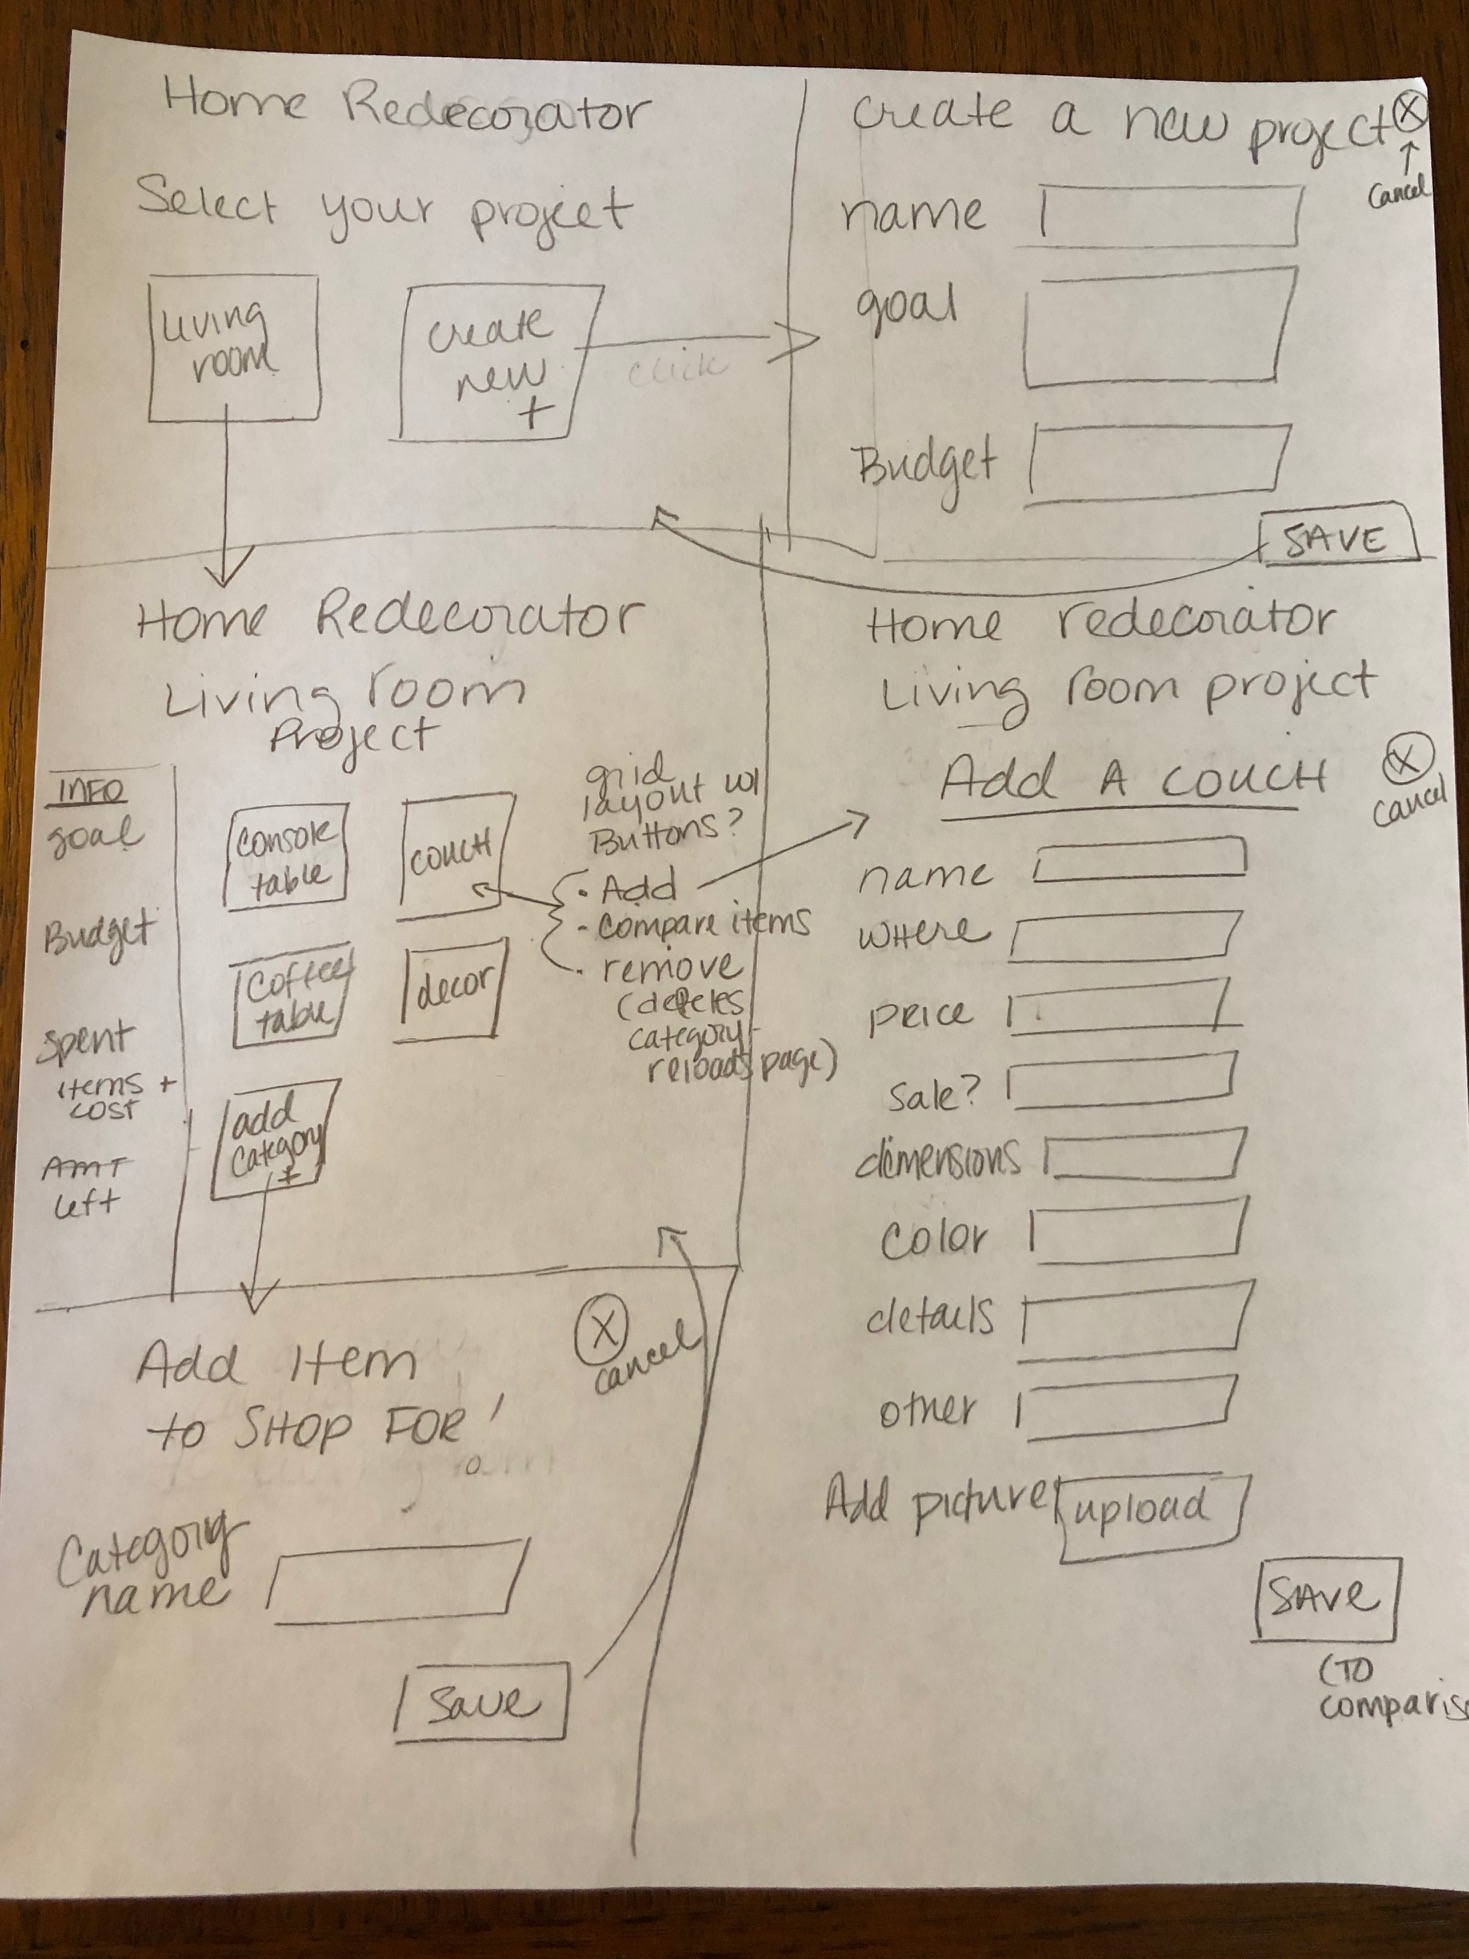 Home Redecorator
Select your project
Living
room
create
new
+
click
create a new project X
cancel
name
goal
Budget
SAVE
Home Redecorator
Living room
Project
INFO
goal
Budget
spent
items +
cost
AMT
left
console
table
couch
coffee
table
decor
add
category
+
grid
layout w/
Buttons?
· Add
- compare items
· remove
(deletes
category-
reloads page)
Add Item
to SHOP FOR
X
cancel
Category
name
save
Home redecorator
Living room project
Add A COUCH
X
cancel
name
where
price
sale?
dimensions
color
details
other
Add picture upload
SAVE
(TO
comparis